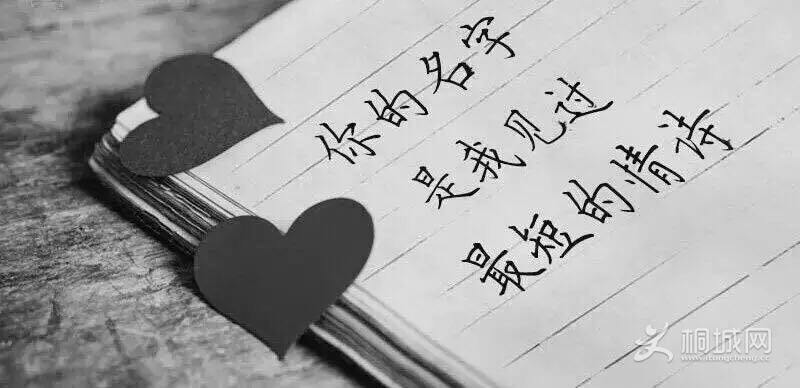 你的名字
是我见过
最短的情诗
桐城网
www.itongcheng.cc